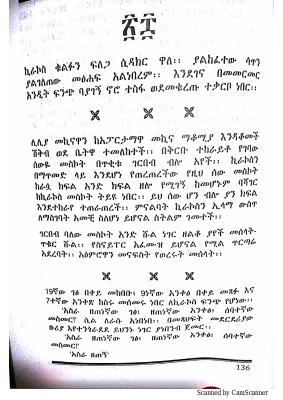 ፳፻
ኪራኮስ ቁልፉን ፍለጋ ሲዳክር ዋለ። ያልከፈተው ሳጥን
ያልገለጠው መፅሐፍ አልነበረም። እንደገና በመመርመር
አንዲት ፍንጭ ባያገኝ ኖሮ ተስፋ ወደመቁረጡ ተቃርቦ ነበር።
ሊሊያ መኪናዋን ከአፓርታማዋ መኪና ማቆሚያ እንዳቆመች
ሽቅብ ወደ ቤትዋ ተመለከተች። በቅርቡ ተከራይቶ የገባው
ሰውዬ መስኮት በጥቂቱ ገርበብ ብሎ አየች። ኪራኮስን
በማጥመድ ላይ እንደሆነ የጠረጠረችው የዚህ ሰው መስኮት
ከሷ ክፍል አንድ ክፍል ዘሎ የሚገኝ ከመሆኑም ባሻገር
ከኪራኮስ መስኮት ትይዩ ነበር። ይህ ሰው ሆን ብሎ ያን ክፍል
እንደተከራየ ተጠራጠረች። ምናልባት ኪራኮስን ኢላማ ውስጥ
ለማስገባት አመቺ ስለሆነ ይሆናል ስትል ገመተች።
ገርበብ ባለው መስኮት አንድ ሹል ነገር ዘልቆ ያየች መሰላት።
ጥቁር ሹል። የስናይፐር አፈሙዝ ይሆናል የሚል ጥርጣሬ
አደረባት። አዕምሮዋን መናፍስት የወረሩት መሰላት።
19ኛው ገፅ በቀይ መከበቡ፣ 9ነኛው አንቀፅ በቀይ መጻፉ እና
7ተኛው አንቀጽ ከስር መሰመሩ ነበር ለኪራኮስ ፍንጭ የሆነው።
'አስራ ዘጠነኛው ገፅ፣ ዘጠነኛው አንቀፅ፣ ሰባተኛው
መስመር!' ሲል ለራሱ አነበነበ።
'አስራ ዘጠነኛው ገፅ፣ ዘጠነኛው አንቀፅ፣ ሰባተኛው
መስመር!'
'አስራ ዘጠኝ'
136
Scanned by CamScanner